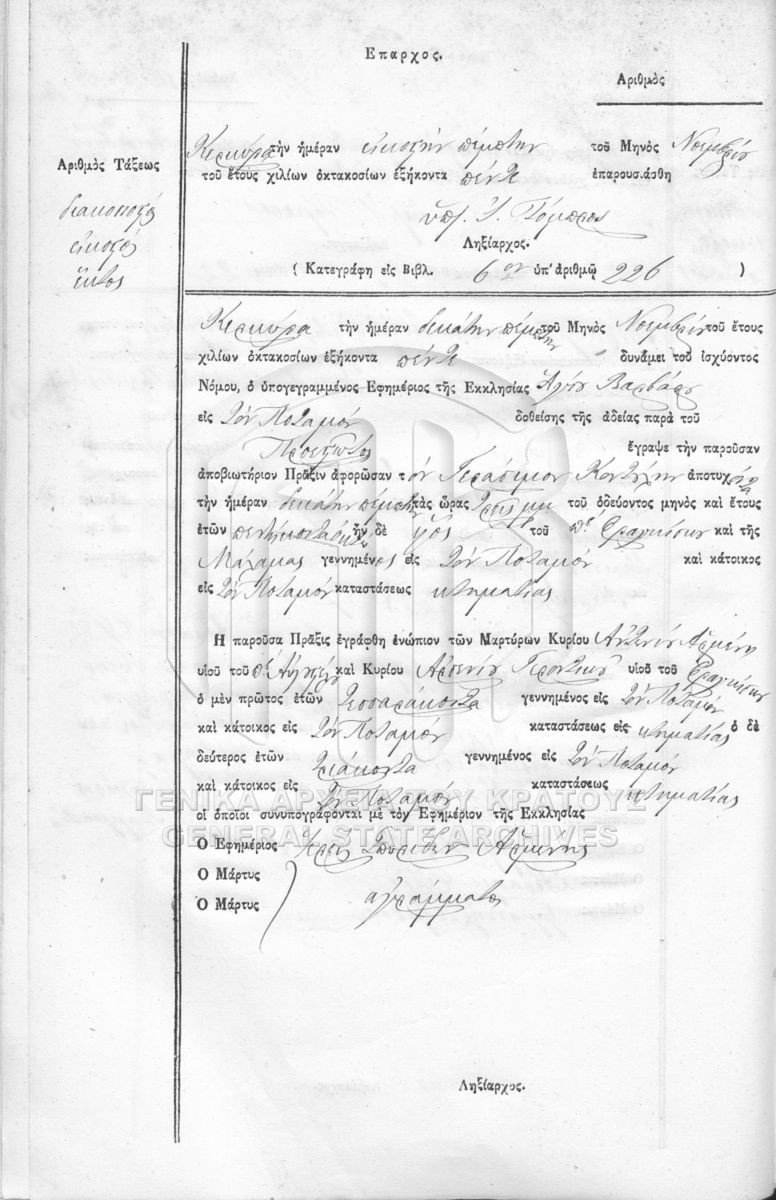 Επαρχος.
Αριθμὸς
Αριθμὸς Τάξεως
διακοσιοστὸς
εἰκοστὸς
ἕκτος
Κερκύρα τὴν ἡμέραν εἰκοστὴν πέμπτην τοῦ Μηνὸς Νοεμβρίου
τοῦ ἔτους χιλίων ὀκτακοσίων ἐξήκοντα πέντε ἐπαρουσιάσθη
Ληξίαρχος.
( Κατεγράφη εἰς Βιβλ. 6ον ὑπ' ἀριθμῷ 226 )
Κερκύρα τὴν ἡμέραν δεκάτην πέμπτην τοῦ Μηνὸς Νοεμβρίου τοῦ ἔτους
χιλίων ὀκτακοσίων ἐξήκοντα πέντε δυνάμει τοῦ ἰσχύοντος
Νόμου, ὁ ὑπογεγραμμένος Εφημέριος τῆς Εκκλησίας Ἁγίας Βαρβάρας
εἰς τὸν Ποταμὸν δοθείσης τῆς ἀδείας παρὰ τοῦ
Προεστῶτος ἔγραψε τὴν παροῦσαν
ἀποβιωτήριον Πρᾶξιν ἀφορῶσαν τὸν Γεράσιμον ἀποτυχόντα
τὴν ἡμέραν δεκάτην πέμπτην τὰς ὥρας τρεῖς μμ τοῦ ὁδεύοντος μηνὸς καὶ ἔτους
ἐτῶν ἦν δὲ υἱὸς τοῦ πε Φραγκίσκου καὶ τῆς
Μάλαμας γεννημένος εἰς τὸν Ποταμὸν καὶ κάτοικος
εἰς τὸν Ποταμὸν καταστάσεως κτηματίας
Η παροῦσα Πρᾶξις ἐγράφθη ἐνώπιον τῶν Μαρτύρων Κυρίου Ἀντωνίου Ἀρμένη
υἱοῦ τοῦ πε Ἀγγέλου καὶ Κυρίου Ἀρσενίου υἱοῦ τοῦ Φραγκίσκου
ὁ μὲν πρῶτος ἐτῶν τεσσαράκοντα γεννημένος εἰς τὸν Ποταμὸν
καὶ κάτοικος εἰς τὸν Ποταμὸν καταστάσεως εἰς κτηματίας ὁ δὲ
δεύτερος ἐτῶν τριάκοντα γεννημένος εἰς τὸν Ποταμὸν
καὶ κάτοικος εἰς τὸν Ποταμὸν καταστάσεως κτηματίας
οἱ ὁποῖοι συνυπογράφονται μὲ τὸν Εφημέριον τῆς Εκκλησίας
Ο Εφημέριος Ἱερεὺς Σπυρίδων Ἀρμένης
Ο Μάρτυς
Ο Μάρτυς ἀγράμματοι
Ληξίαρχος.
ΓΕΝΙΚΑ ΑΡΧΕΙΑ ΤΟΥ ΚΡΑΤΟΥΣ
GENERAL STATE ARCHIVES